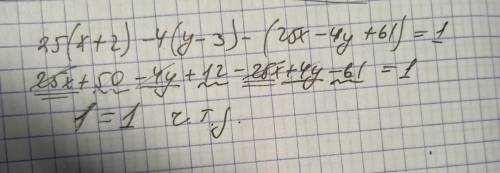 25(x+2) -4(y-3) - (25x-4y+61) = 1
25x + 50 - 4y + 12 - 25x + 4y - 61 = 1
1 = 1 ч.т.д.